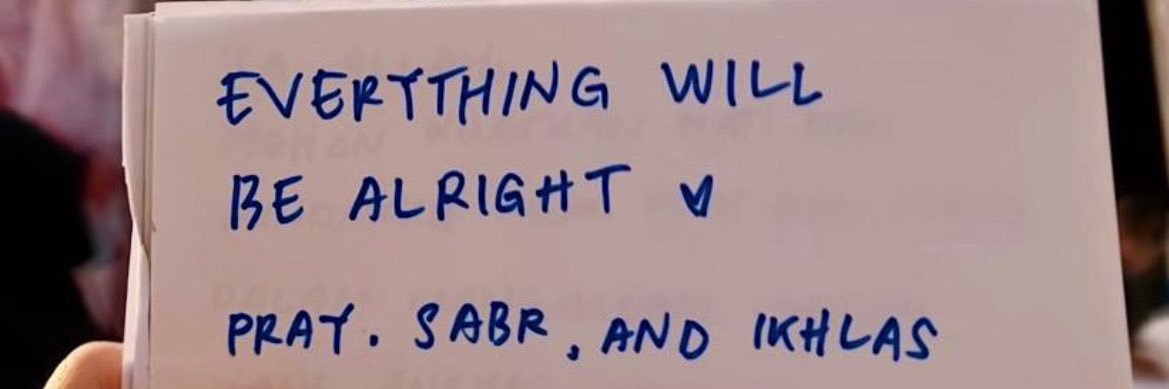 EVERYTHING WILL
BE ALRIGHT ♥
PRAY. SABR, AND IKHLAS